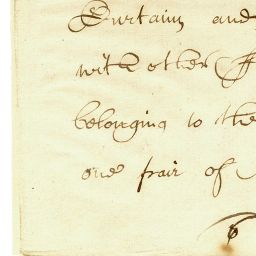 Curtains and
with other
belonging to the
one pair of